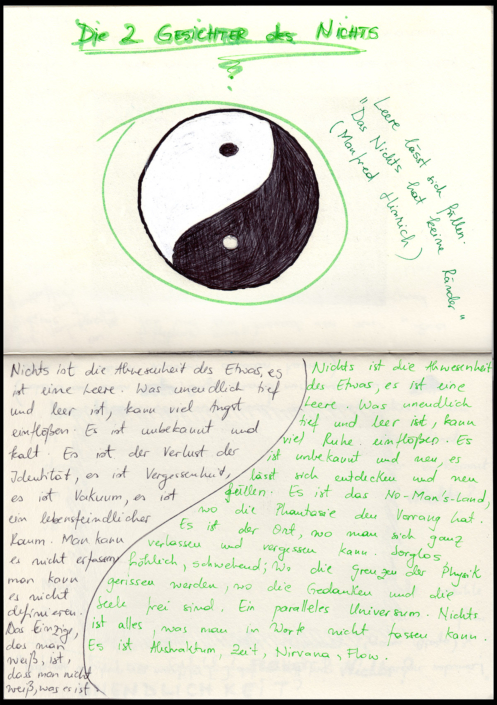 Die 2 GESICHTER des NICHTS
"Leere lässt sich füllen.
Das Nichts hat keine Ränder"
(Manfred Hinrich)
Nichts ist die Abwesenheit des Etwas, es
ist eine Leere. Was unendlich tief
und leer ist, kann viel Angst
einflößen. Es ist unbekannt und
kalt. Es ist der Verlust der
Identität, es ist Vergessenheit,
es ist Vakuum, es ist
ein lebensfeindlicher
Raum. Man kann
es nicht erfassen,
man kann
es nicht
definieren.
Das Einzige,
das man
weiß, ist,
dass man nicht
weiß, was es ist.
Nichts ist die Abwesenheit
des Etwas, es ist eine
Leere. Was unendlich
tief und leer ist, kann
viel Ruhe einflößen. Es
ist unbekannt und neu, es
lässt sich entdecken und neu
füllen. Es ist das No-Man's-Land,
wo die Phantasie den Vorrang hat.
Es ist der Ort, wo man sich ganz
verlassen und vergessen kann. Sorglos,
fröhlich, schwebend; Wo die Grenzen der Physik
gerissen werden, wo die Gedanken und die
Seele frei sind. Ein paralleles Universum. Nichts
ist alles, was man in Worte nicht fassen kann.
Es ist Abstraktum, Zeit, Nirvana, Flow.